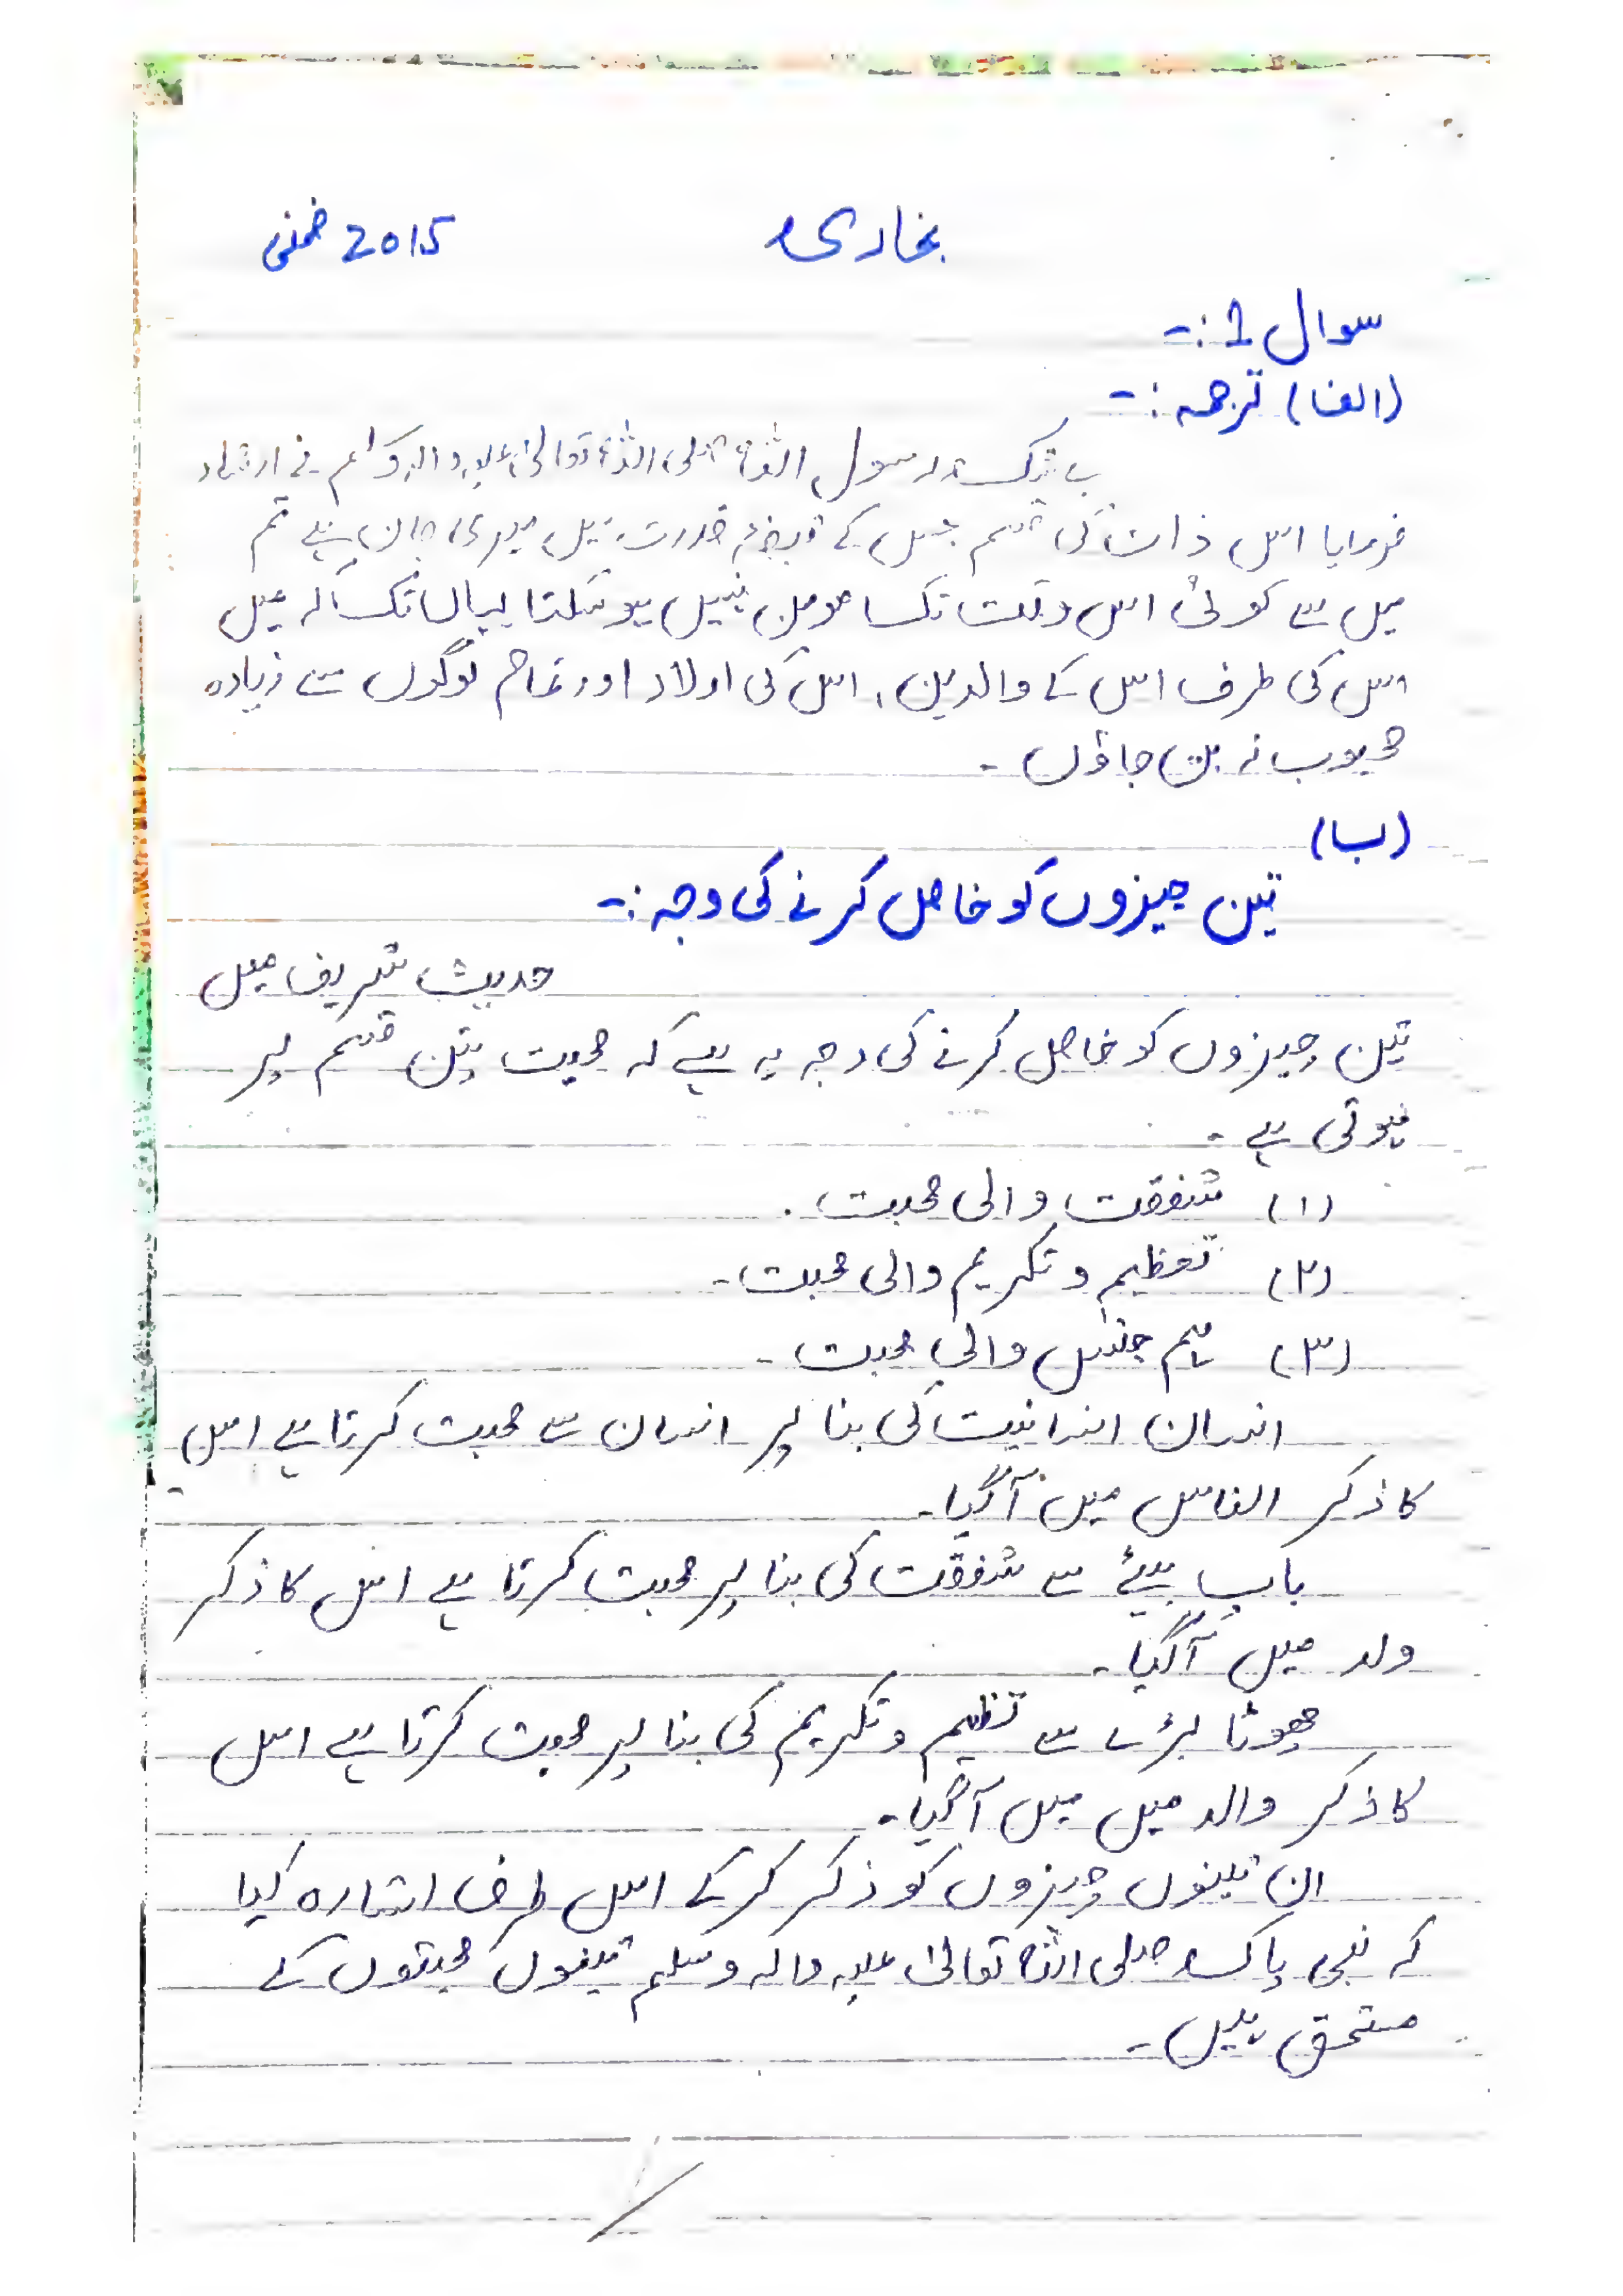 بخاری 2015 ضمنی
سوال 1 :-
(الف) ترجمہ :-
بے شک رسول اللہ صلی اللہ تعالیٰ علیہ والہ وسلم نے ارشاد
فرمایا اس ذات کی قسم جس کے قبضہ قدرت میں میری جان ہے تم
میں سے کوئی اس وقت تک مومن نہیں ہو سکتا یہاں تک کہ میں
اس کی طرف اس کے والدین، اس کی اولاد اور تمام لوگوں سے زیادہ
محبوب نہ بن جاؤں -
(ب)
تین چیزوں کو خاص کرنے کی وجہ :-
حدیث شریف میں
تین چیزوں کو خاص کرنے کی وجہ یہ ہے کہ محبت تین قسم پر
ہوتی ہے -
(۱) شفقت والی محبت .
(۲) تعظیم و تکریم والی محبت -
(۳) ہم جنس والی محبت -
انسان انسانیت کی بنا پر انسان سے محبت کرتا ہے اس
کا ذکر الناس میں آگیا -
باپ بیٹے سے شفقت کی بنا پر محبت کرتا ہے اس کا ذکر
ولد میں آگیا -
چھوٹا بڑے سے تظیم و تکریم کی بنا پر محبت کرتا ہے اس
کا ذکر والد میں میں آگیا -
ان تینوں چیزوں کو ذکر کر کے اس طرف اشارہ کیا
کہ نبی پاک صلی اللہ تعالیٰ علیہ والہ وسلم تینوں محبتوں کے
مستحق ہیں -